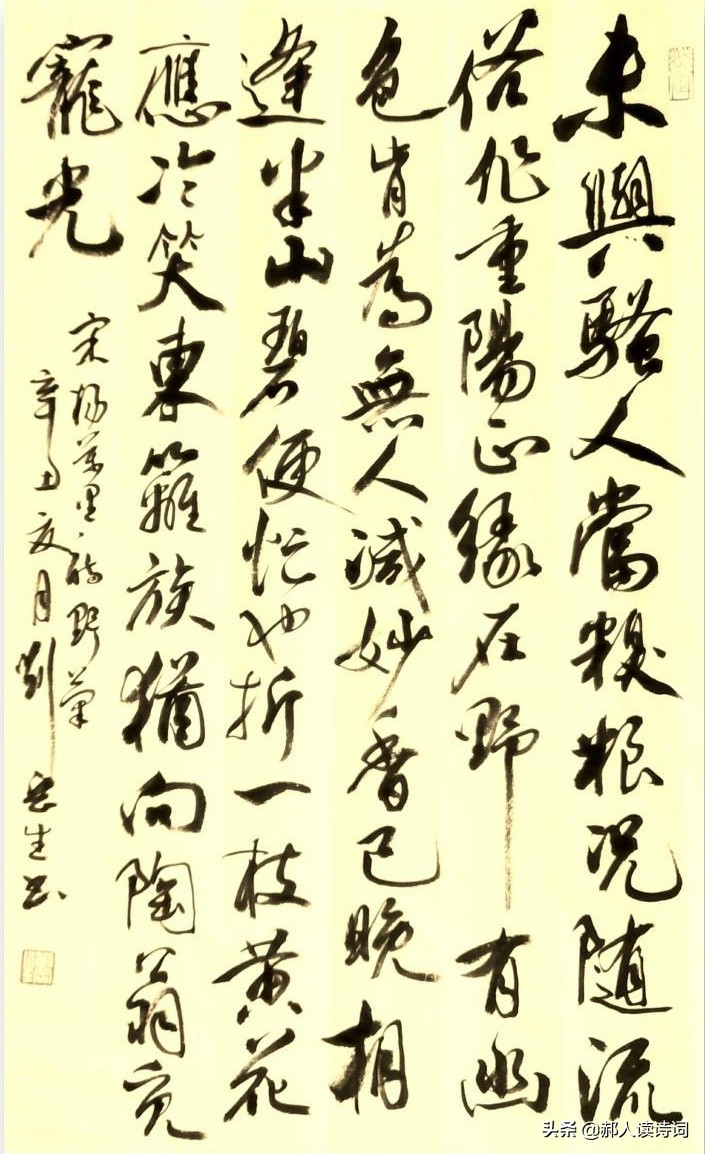 未與騷人當糗粮況随流
俗作重陽正緣在野有幽
色肯為無人減妙香已晚相
逢半山碧便忙也折一枝黄花
應冷笑東籬族猶向陶翁覓
寵光
宋楊萬里詩野菊
辛丑夏月劉生书
头条 @郝人读诗词